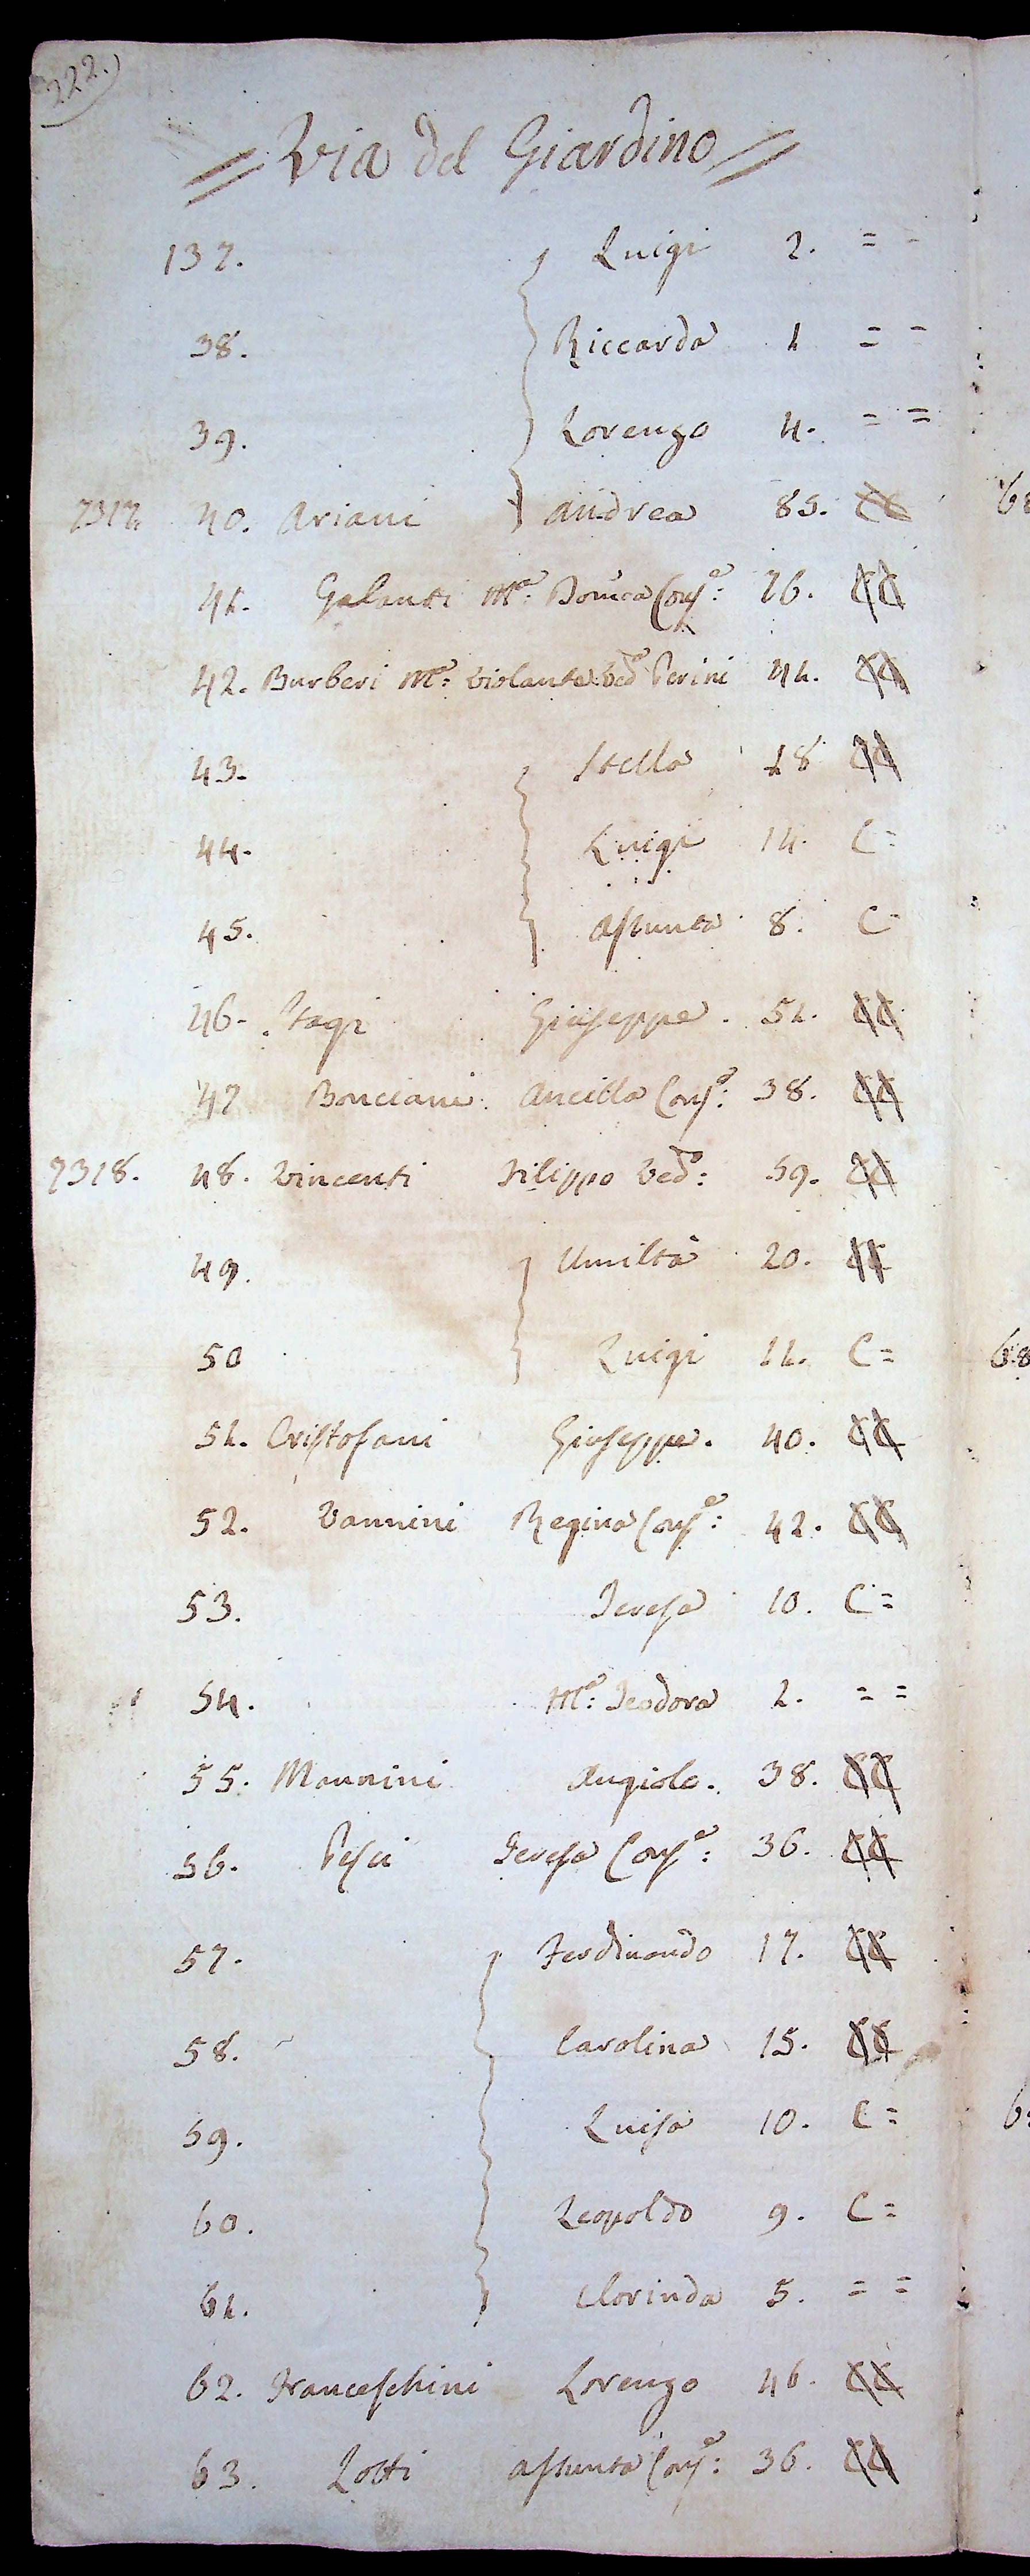 222.)
= Via del Giardino =
137. Luigi 2. = =
38. Riccarda 1 = =
39. Lorenzo 4. = =
7317. 40. Ariani Andrea 85. CC
41. Galanti Mª: Dom̃ca Consᵉ: 76. CC
42. Burberi Mª: Violante Vedª Perini 44. CC
43. Stella 18 CC
44. Luigi 14. C =
45. Assunta 8. C =
46. Stagi Giuseppe. 51. CC
47 Bonciani Ancilla Consᵉ: 38. CC
7318. 48. Vincenti Filippo Vedº: 59. CC
49. Umiltà 20. CC
50 Luigi 11. C =
51. Cristofani Giuseppe. 40. CC
52. Vannini Regina Consᵉ: 42. CC
53. Teresa 10. C =
54. Mª: Teodora 2. = =
55. Mannini Angiolo. 38. CC
56. Pesci Teresa Consᵉ: 36. CC
57. Ferdinando 17. CC
58. Carolina 15. CC
59. Luisa 10. C =
60. Leopoldo 9. C =
61. Clorinda 5. = =
62. Franceschini Lorenzo 46. CC
63. Lotti Assunta Consᵉ: 36. CC